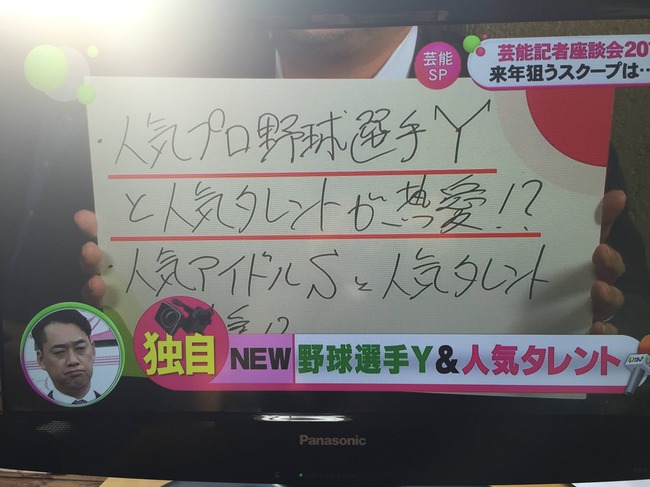 芸能
SP
芸能記者座談会20
来年狙うスクープは…
・人気プロ野球選手Y
と人気タレントが熱愛!?
・人気アイドルSと人気タレント
!?
独自
NEW
野球選手Y&人気タレント
Panasonic